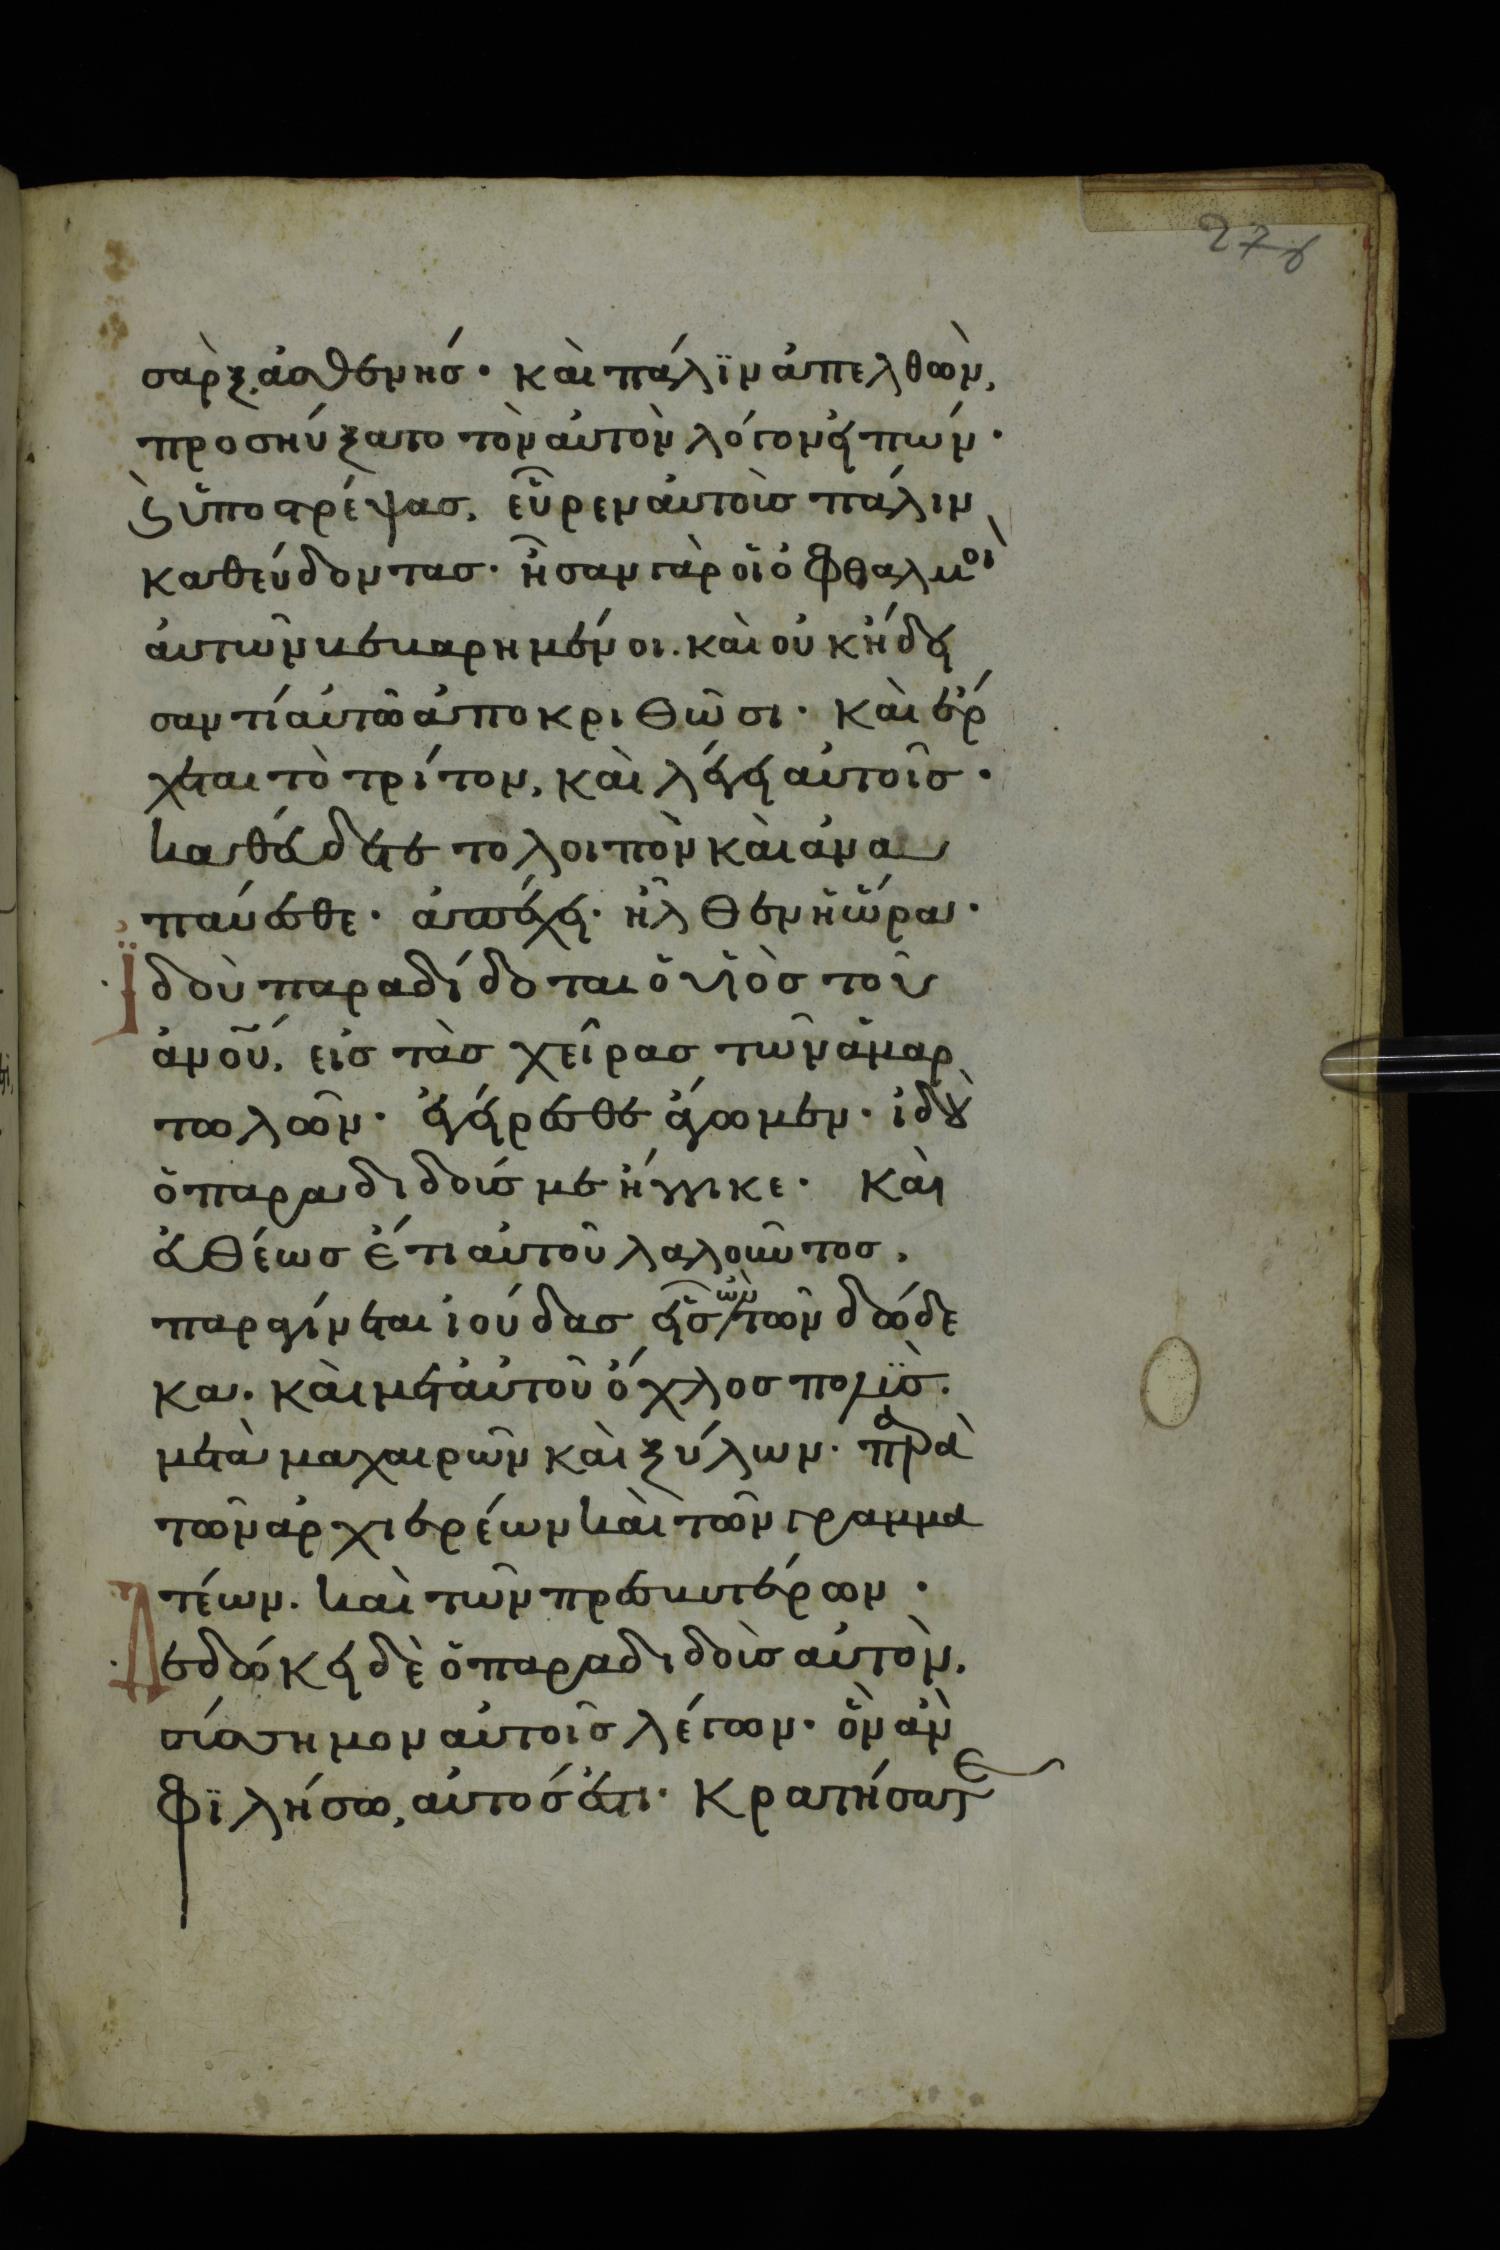 276
σὰρξ, ἀσθενής· καὶ πάλϊν ἀπελθὼν,
προσηύξατο τὸν αὐτὸν λόγον εἰπών·
ϗ ὑποστρέψας, εὗρεν αὐτοὺς πάλιν
καθεύδοντας· ἦσαν γὰρ οἱ ὀφθαλμοὶ
αὐτῶν βεβαρημένοι. καὶ οὐκ ᾔδει
σαν τί αὐτῶ ἀποκριθῶσι· καὶ ἔρ
χεται τὸ τρίτον, καὶ λέγει αὐτοῖς·
καθεύδετε το λοιπὸν καὶ ἀνα
παύεσθε· ἀπέχει· ἦλθεν ἡ ὥρα·
ϊδοὺ παραδίδοται ὁ υἱὸς τοῦ
ἀνου, εἰς τὰς χεῖρας τῶν ἁμαρ
τωλῶν· ἐγείρεσθε ἄγωμεν· ἰδοὺ
ὁ παραδιδούς με ἤγγικε· καὶ
εὐθέως ἔτι αὐτοῦ λαλοῦντος,
παραγίνεται ἰούδας εἷς ὢν τῶν δώδε
κα· καὶ μετ αὐτοῦ ὄχλος πολϋς.
μετὰ μαχαιρῶν καὶ ξύλων· παρὰ
τῶν ἀρχιερέων καὶ τῶν γραμμα
τέων. καὶ τῶν πρεσβυτέρων·
Δεδώκει δὲ ὁ παραδιδοὺς αὐτὸν,
σύσσημον αὐτοῖς λέγων· ὃν ἂν
φϊλήσω, αὐτός ἐστι· κρατήσατε